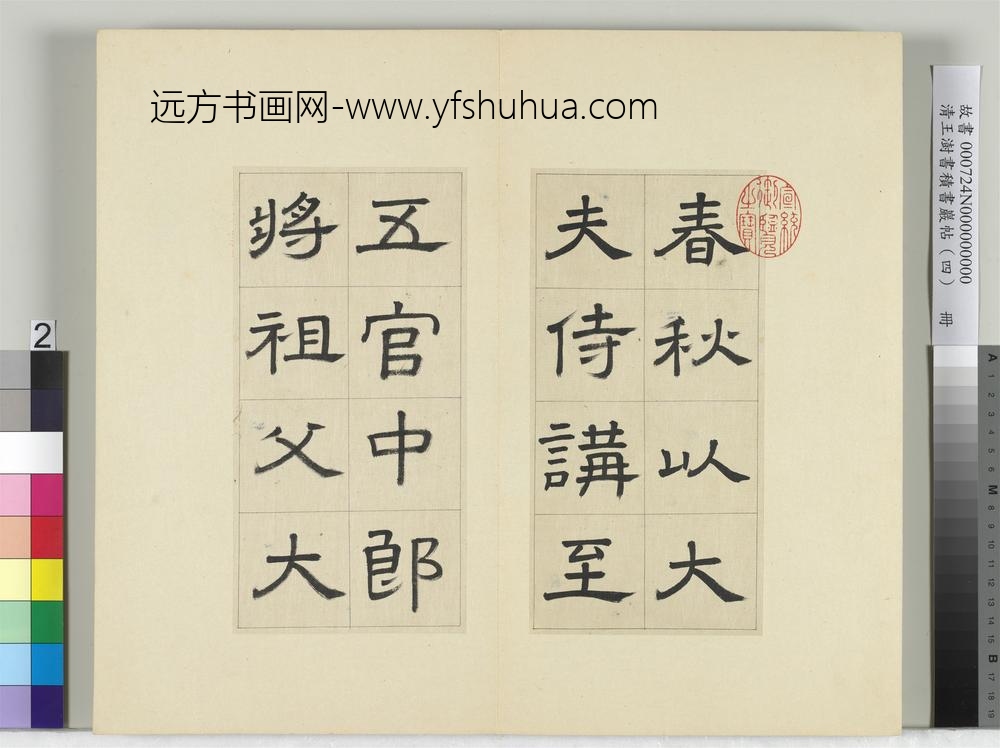 远方书画网-www.yfshuhua.com
春秋以大
夫侍講至
五官中郎
將祖父大
宣統御覽之寶
故書 000724N000000000
清王澍書積書巖帖（四） 冊
2
A 1 2 3 4 5 6 M 8 9 10 11 12 13 14 15 B 17 18 19